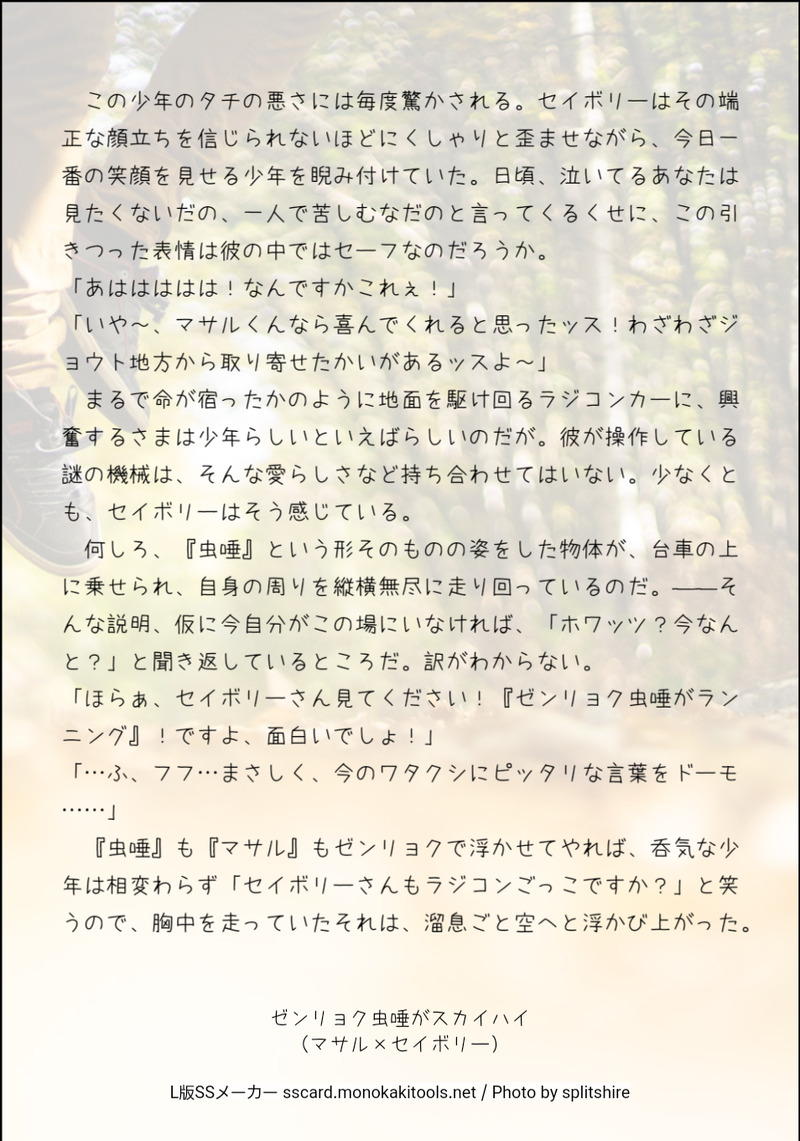 この少年のタチの悪さには毎度驚かされる。セイボリーはその端
正な顔立ちを信じられないほどにくしゃりと歪ませながら、今日一
番の笑顔を見せる少年を睨み付けていた。日頃、泣いてるあなたは
見たくないだの、一人で苦しむなだのと言ってくるくせに、この引
きつった表情は彼の中ではセーフなのだろうか。
「あはははははは！なんですかこれぇ！」
「いや〜、マサルくんなら喜んでくれると思ったッス！わざわざジ
ョウト地方から取り寄せたかいがあるッスよ〜」
まるで命が宿ったかのように地面を駆け回るラジコンカーに、興
奮するさまは少年らしいといえばらしいのだが。彼が操作している
謎の機械は、そんな愛らしさなど持ち合わせてはいない。少なくと
も、セイボリーはそう感じている。
何しろ、『虫唾』という形そのものの姿をした物体が、台車の上
に乗せられ、自身の周りを縦横無尽に走り回っているのだ。――そ
んな説明、仮に今自分がこの場にいなければ、「ホワッツ？今なん
と？」と聞き返しているところだ。訳がわからない。
「ほらぁ、セイボリーさん見てください！『ゼンリョク虫唾がラン
ニング』！ですよ、面白いでしょ！」
「…ふ、フフ…まさしく、今のワタクシにピッタリな言葉をドーモ
……」
『虫唾』も『マサル』もゼンリョクで浮かせてやれば、呑気な少
年は相変わらず「セイボリーさんもラジコンごっこですか？」と笑
うので、胸中を走っていたそれは、溜息ごと空へと浮かび上がった。
ゼンリョク虫唾がスカイハイ
（マサル×セイボリー）
L版SSメーカー sscard.monokakitools.net / Photo by splitshire